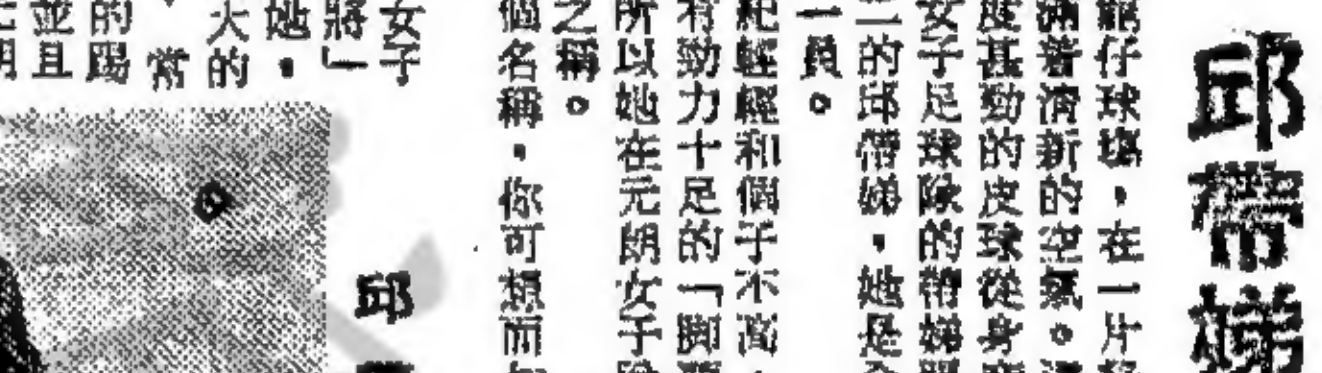 邱帶娣
仔球場，在一片
滿着清新的空氣。
度甚勁的皮球從身
女子足球隊的帶娣
二的邱帶娣，她是
一員。
紀輕輕和個子不高，
有勁力十足的「脚
所以她在元朗女子
之稱。
個名稱，你可想而
女子
將」
她，
大的
常
的踢
並且
邱